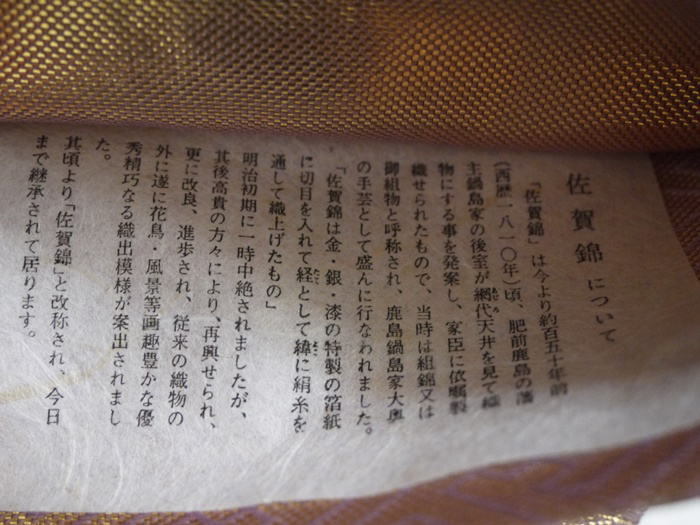 佐賀錦について
「佐賀錦」は今より約百五十年前
(西歴一八一〇年)頃、肥前鹿島の藩
主鍋島家の後室が網代天井を見て織
物にする事を発案し、家臣に依嘱製
織せられたもので、当時は組錦又は
御組物と呼称され、鹿島鍋島家大奥
の手芸として盛んに行なわれました。
「佐賀錦は金・銀・漆の特製の箔紙
に切目を入れて経として緯に絹糸を
通して織上げたもの」
明治初期に一時中絶されましたが、
其後高貴の方々により、再興せられ、
更に改良、進歩され、従来の織物の
外に遂に花鳥・風景等画趣豊かな優
秀精巧なる織出模様が案出されまし
た。
其頃より「佐賀錦」と改称され、今日
まで継承されて居ります。